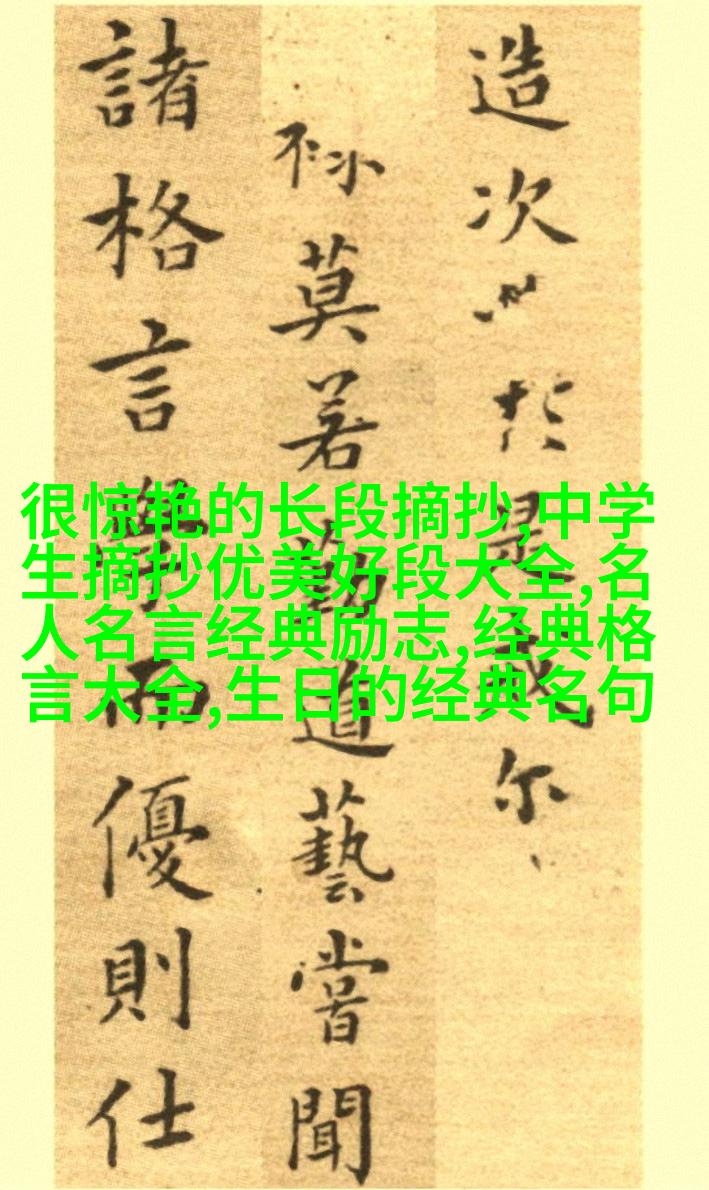 造次於是尔
莫若勤道藝嘗聞
諸格言學而優則仕
很惊艳的长段摘抄,中学
生摘抄优美好段大全,名
人名言经典励志,经典格
言大全,生日的经典名句